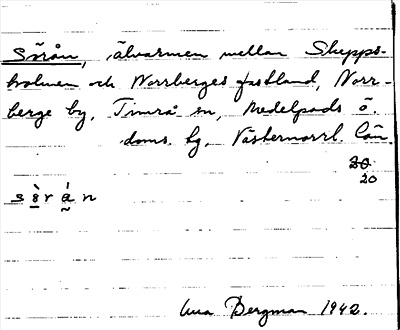 Sörån, älvarmen mellan Skepps-
holmen och Norrberges fastland, Norr-
berge by, Timrå sn, Medelpads ö.
doms. hg, Västernorrl. län.
20
20
s ö̀ r ǻ n
Bergman 1942.